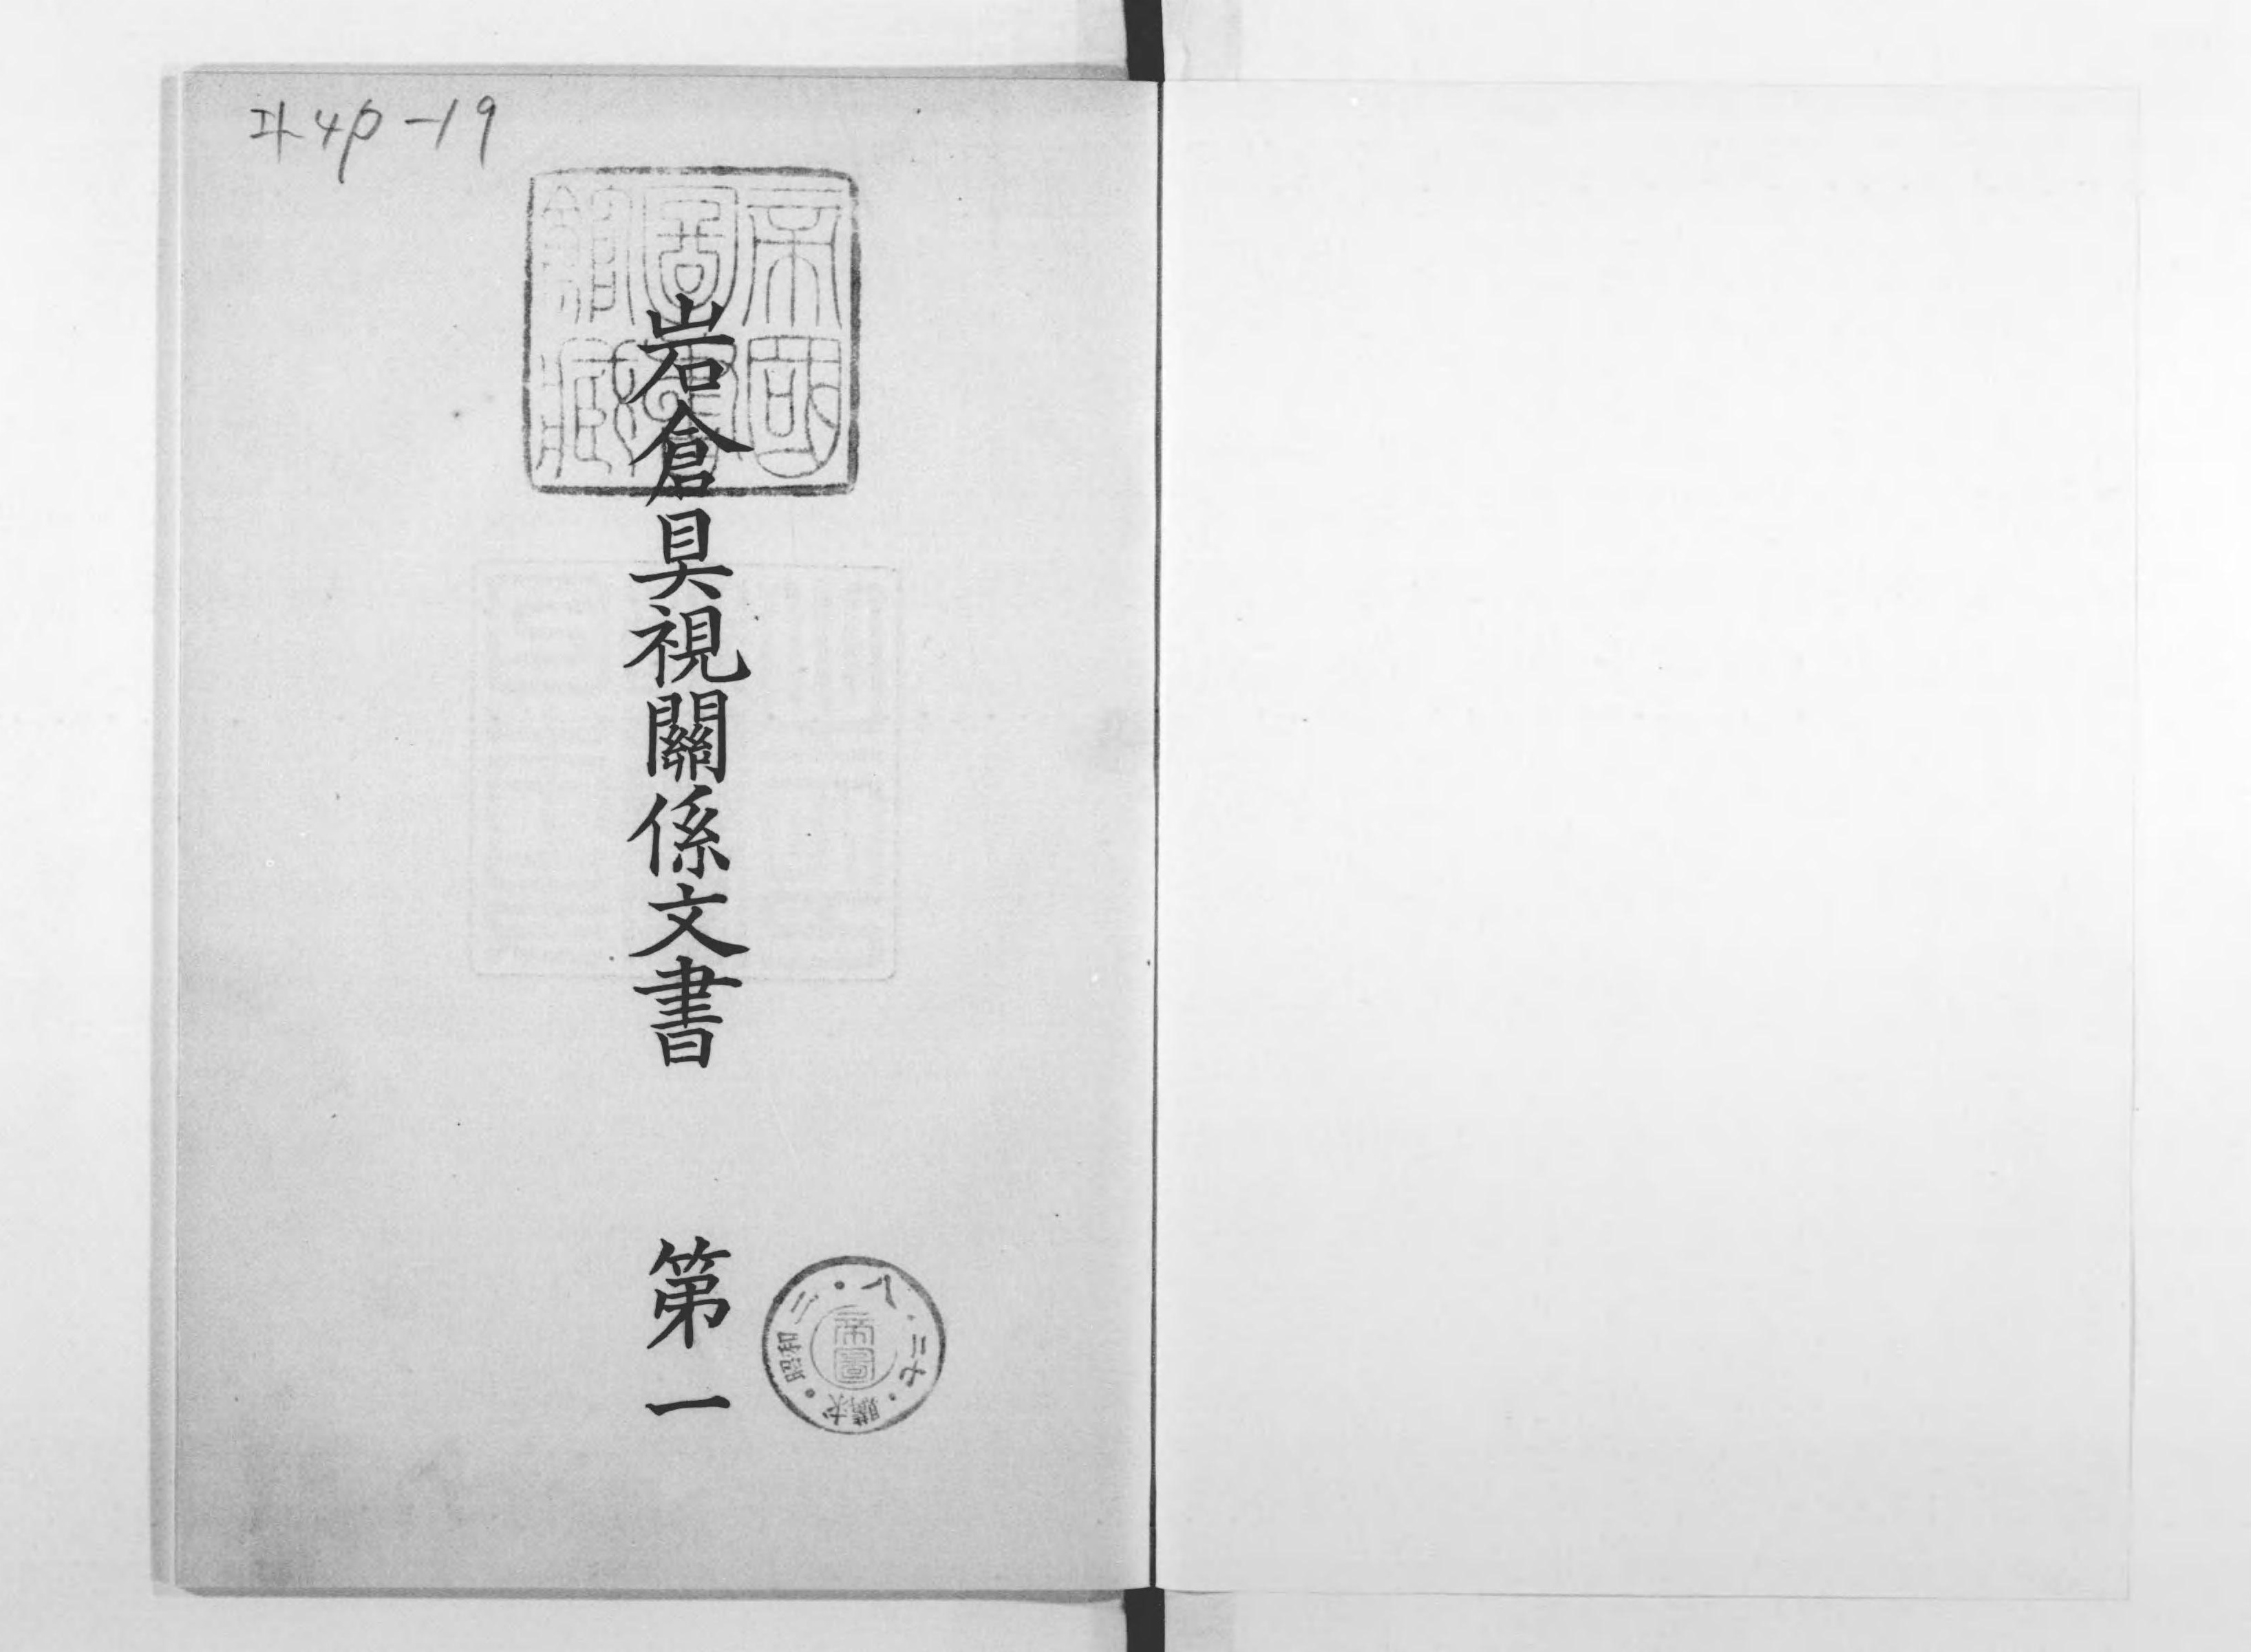 帝國
圖書
館藏
岩倉具視關係文書 第一
昭和 三・八・二七・購求
帝圖